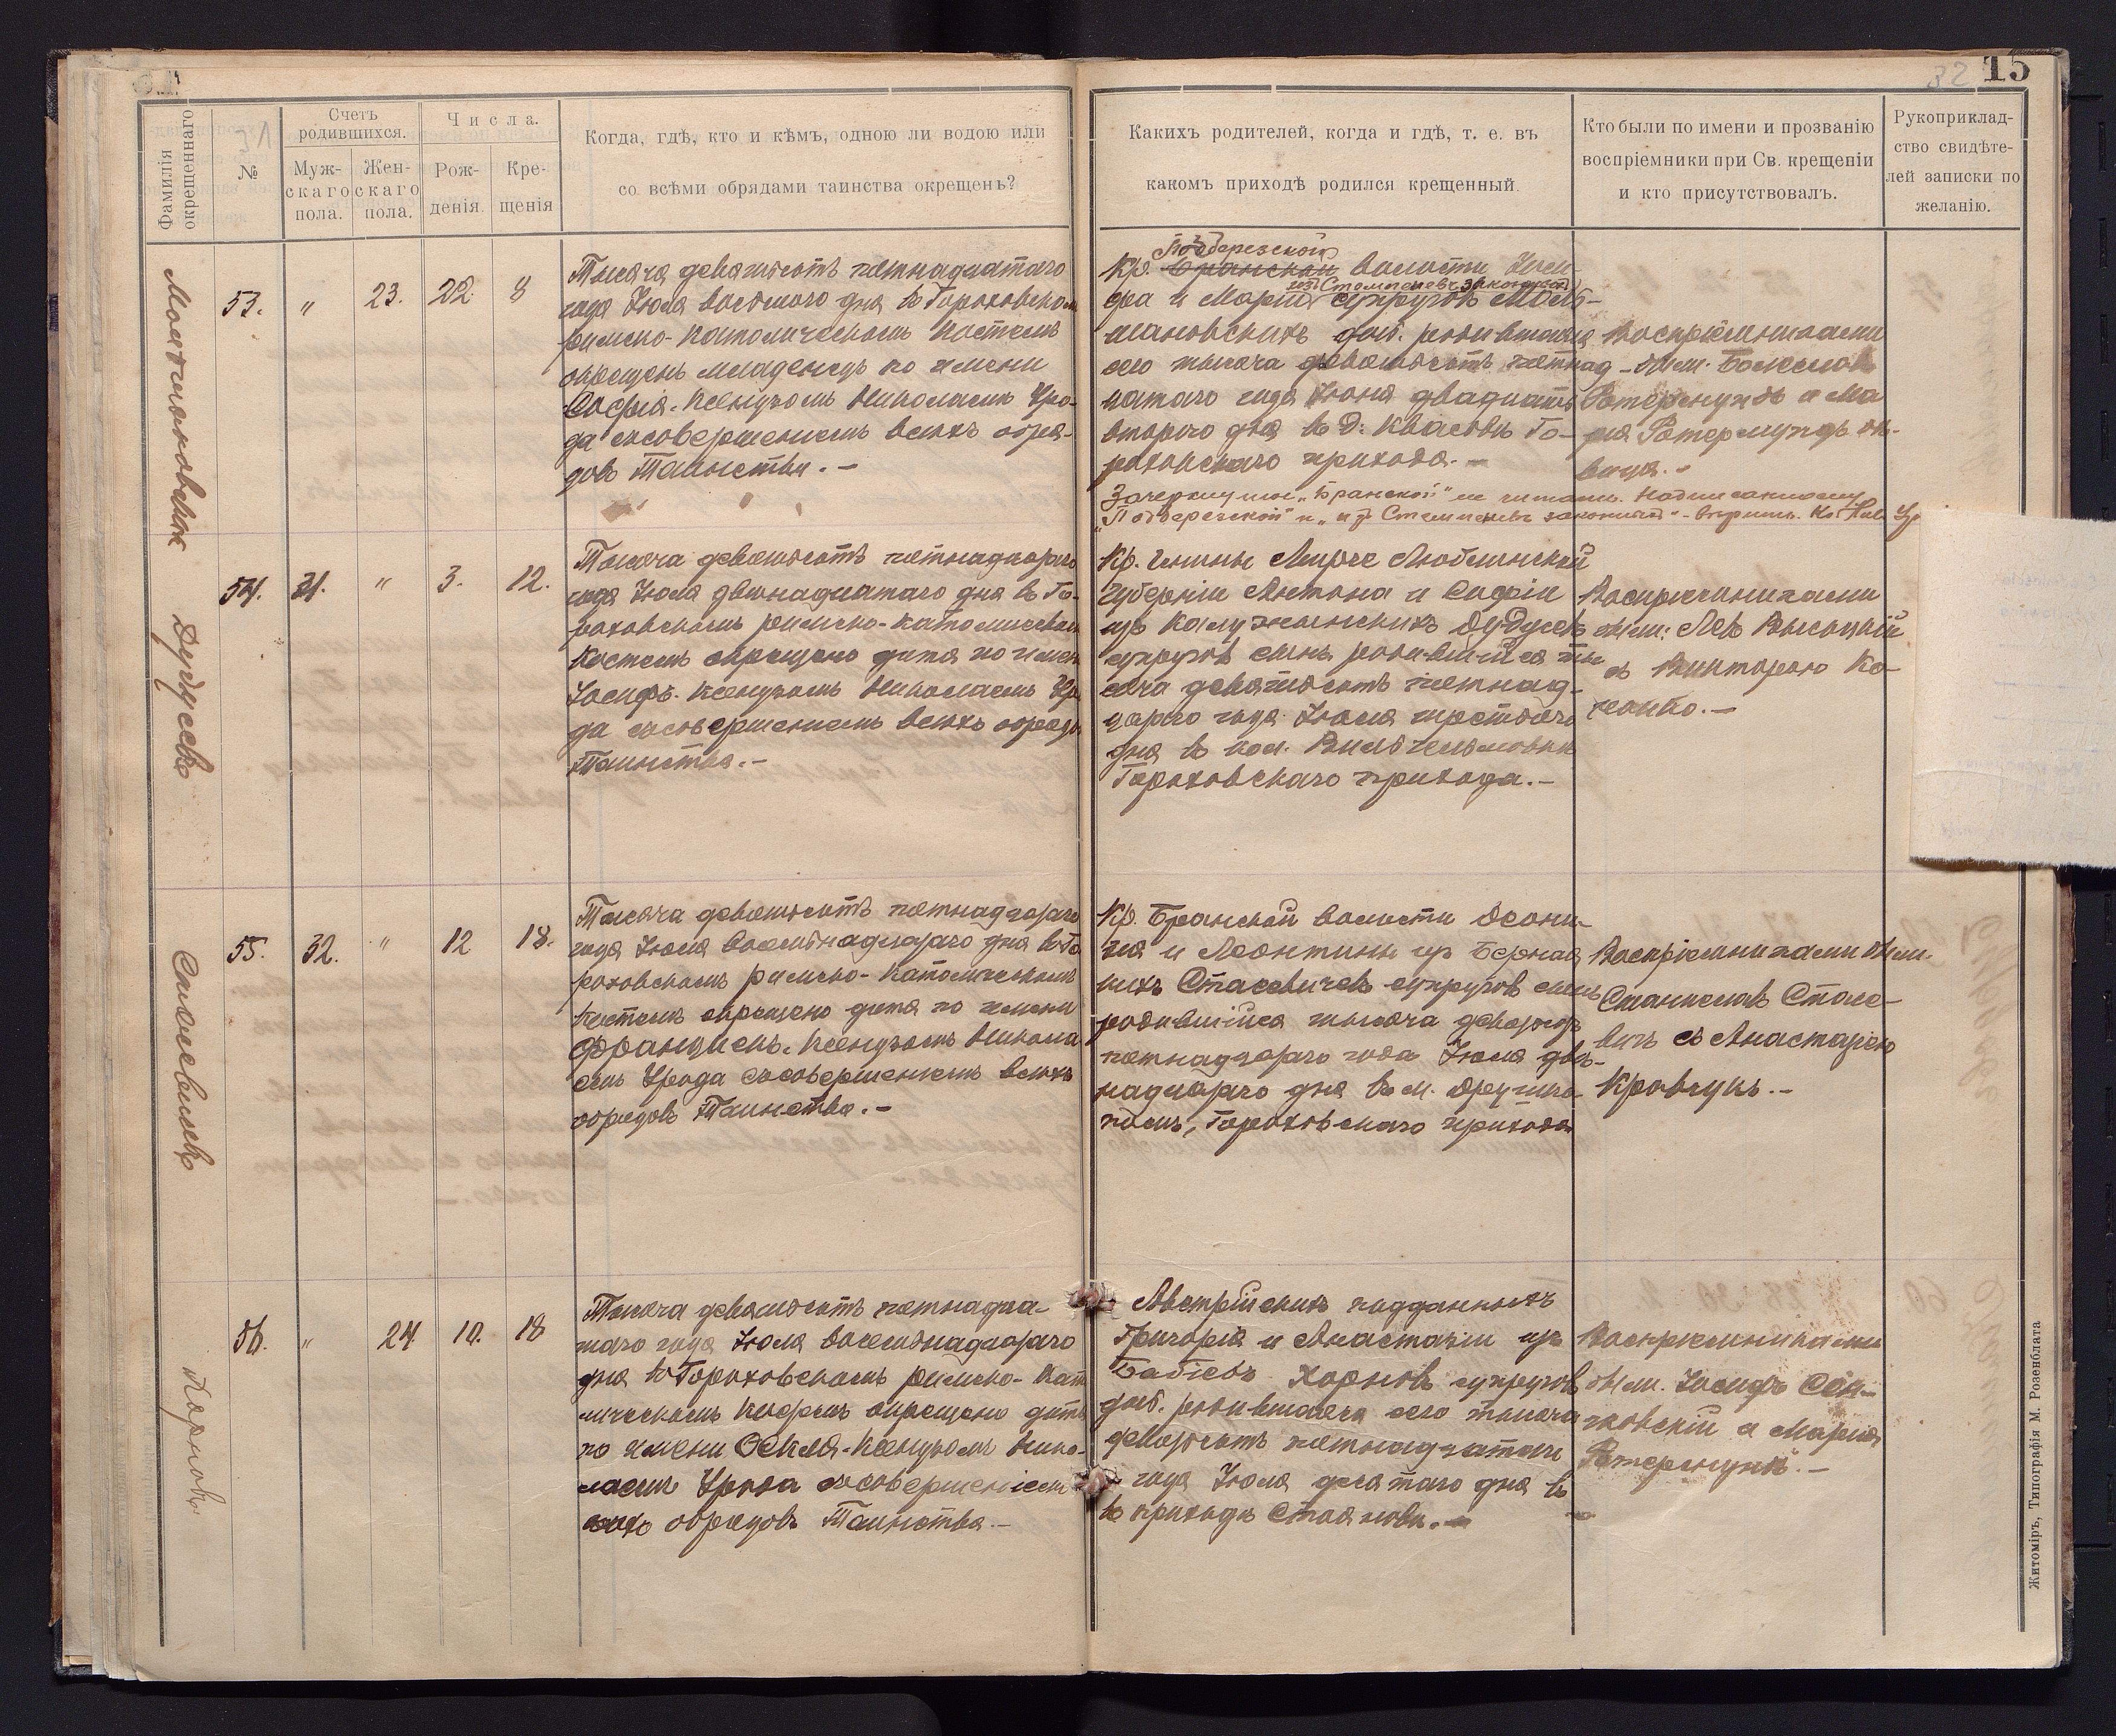 15
32
Фамилія окрещеннаго
№
31
Счетъ родившихся.
Муж-скаго пола.
Жен-скаго пола.
Числа.
Рож-денія.
Кре-щенія
Когда, гдѣ, кто и кѣмъ, одною ли водою или
со всѣми обрядами таинства окрещенъ?
Какихъ родителей, когда и гдѣ, т. е. въ
какомъ приходѣ родился крещенный.
Кто были по имени и прозванію
воспріемники при Св. крещеніи
и кто присутствовалъ.
Рукоприклад-
ство свидѣте-
лей записки по
желанію.
53. " 23. 22. 8
Тысяча девятьсотъ пятнадцатаго
года Іюля восьмого дня въ Гороховском
римско-католическомъ костелѣ
окрещенъ младенецъ по имени
Софія. Ксендзомъ Николаемъ Уро-
да съсовершеніемъ всѣхъ обря-
довъ Таинства.-
Подберезской
Кр. Бранской волости
изъ Стемпеневъ законныхъ
и Маріи супруговъ
дочь. родившаяся
сего тысяча девятьсотъ пятнад-
цатаго года Іюня двадцать
второго дня въ д: Квасовъ Го-
роховскаго прихода.-
Зачеркнутое „Бранской" не читать. Надписанному
„Подберезской" и „изъ Стемпеневъ законныхъ" - вѣрить. Кс. Ник Ур
Воспріемниками
были: Болеслав
Ротермундъ и Ма
рія Ротермундъ
54. 31. " 3. 12.
Дудусевъ
Тысяча девятьсотъ пятнадцатаго
года Іюля двѣнадцатаго дня въ Го-
роховскомъ римско-католическом
костелѣ окрещено дитя по имени
Іосифъ. Ксендзомъ Николаемъ Уро
да съсовершеніемъ всѣхъ обрядов
Таинства.-
Кр. гмины Люблинской
губерніи Антона и Софіи
изъ Дудусевъ
супруговъ сынъ родившійся ты
сяча девятьсотъ пятнад-
цатаго года Іюля третьяго
дня въ кол.
Гороховскаго прихода.-
Воспріемниками
были: Левъ Высоцкій
съ Викторією Ко-
55. 32. " 12 18.
Стасевичъ
Тысяча девятьсотъ пятнадцатаго
года Іюля восемьнадцатаго дня въ Го
роховскомъ римско-католическомъ
костелѣ окрещено дитя по имени
Францискъ. Ксендзомъ Никола
емъ Урода съсовершеніемъ всѣхъ
обрядовъ Таинства.-
Кр. Бранской волости Діони-
зія и Леонтины изъ Бернац
кихъ Стасевичевъ супруговъ сынъ
родившійся тысяча девятьсотъ
пятнадцатаго года Іюля двѣ-
надцатаго дня въ м. Дружко-
полѣ, Гороховскаго прихода
Воспріемниками были.
Станиславъ Стасе-
вичъ съ Анастазіею
Кравчукъ.-
56. " 24 10. 18
Хорновъ
Тысяча девятьсотъ пятнадца-
таго года Іюля восемьнадцатаго
дня въ Гороховскомъ римско-като
лическомъ костелѣ окрещено дитя
по имени Фекля. Ксендзомъ Нико-
лаемъ Урода съсовершеніемъ
всѣхъ обрядовъ Таинства.-
Австрійскихъ подданныхъ
Григорія и Анастазіи изъ
Бабіевъ Хорновъ супруговъ
дочь. родившаяся сего тысяча
девятьсотъ пятнадцатаго
года Іюля десятаго дня въ
въ приходѣ Стояновъ.-
Воспріемниками
были. Іосифъ Сен-
ковскій и Марія
Ротермундъ.-
Житоміръ, Типографія М. Розенблата